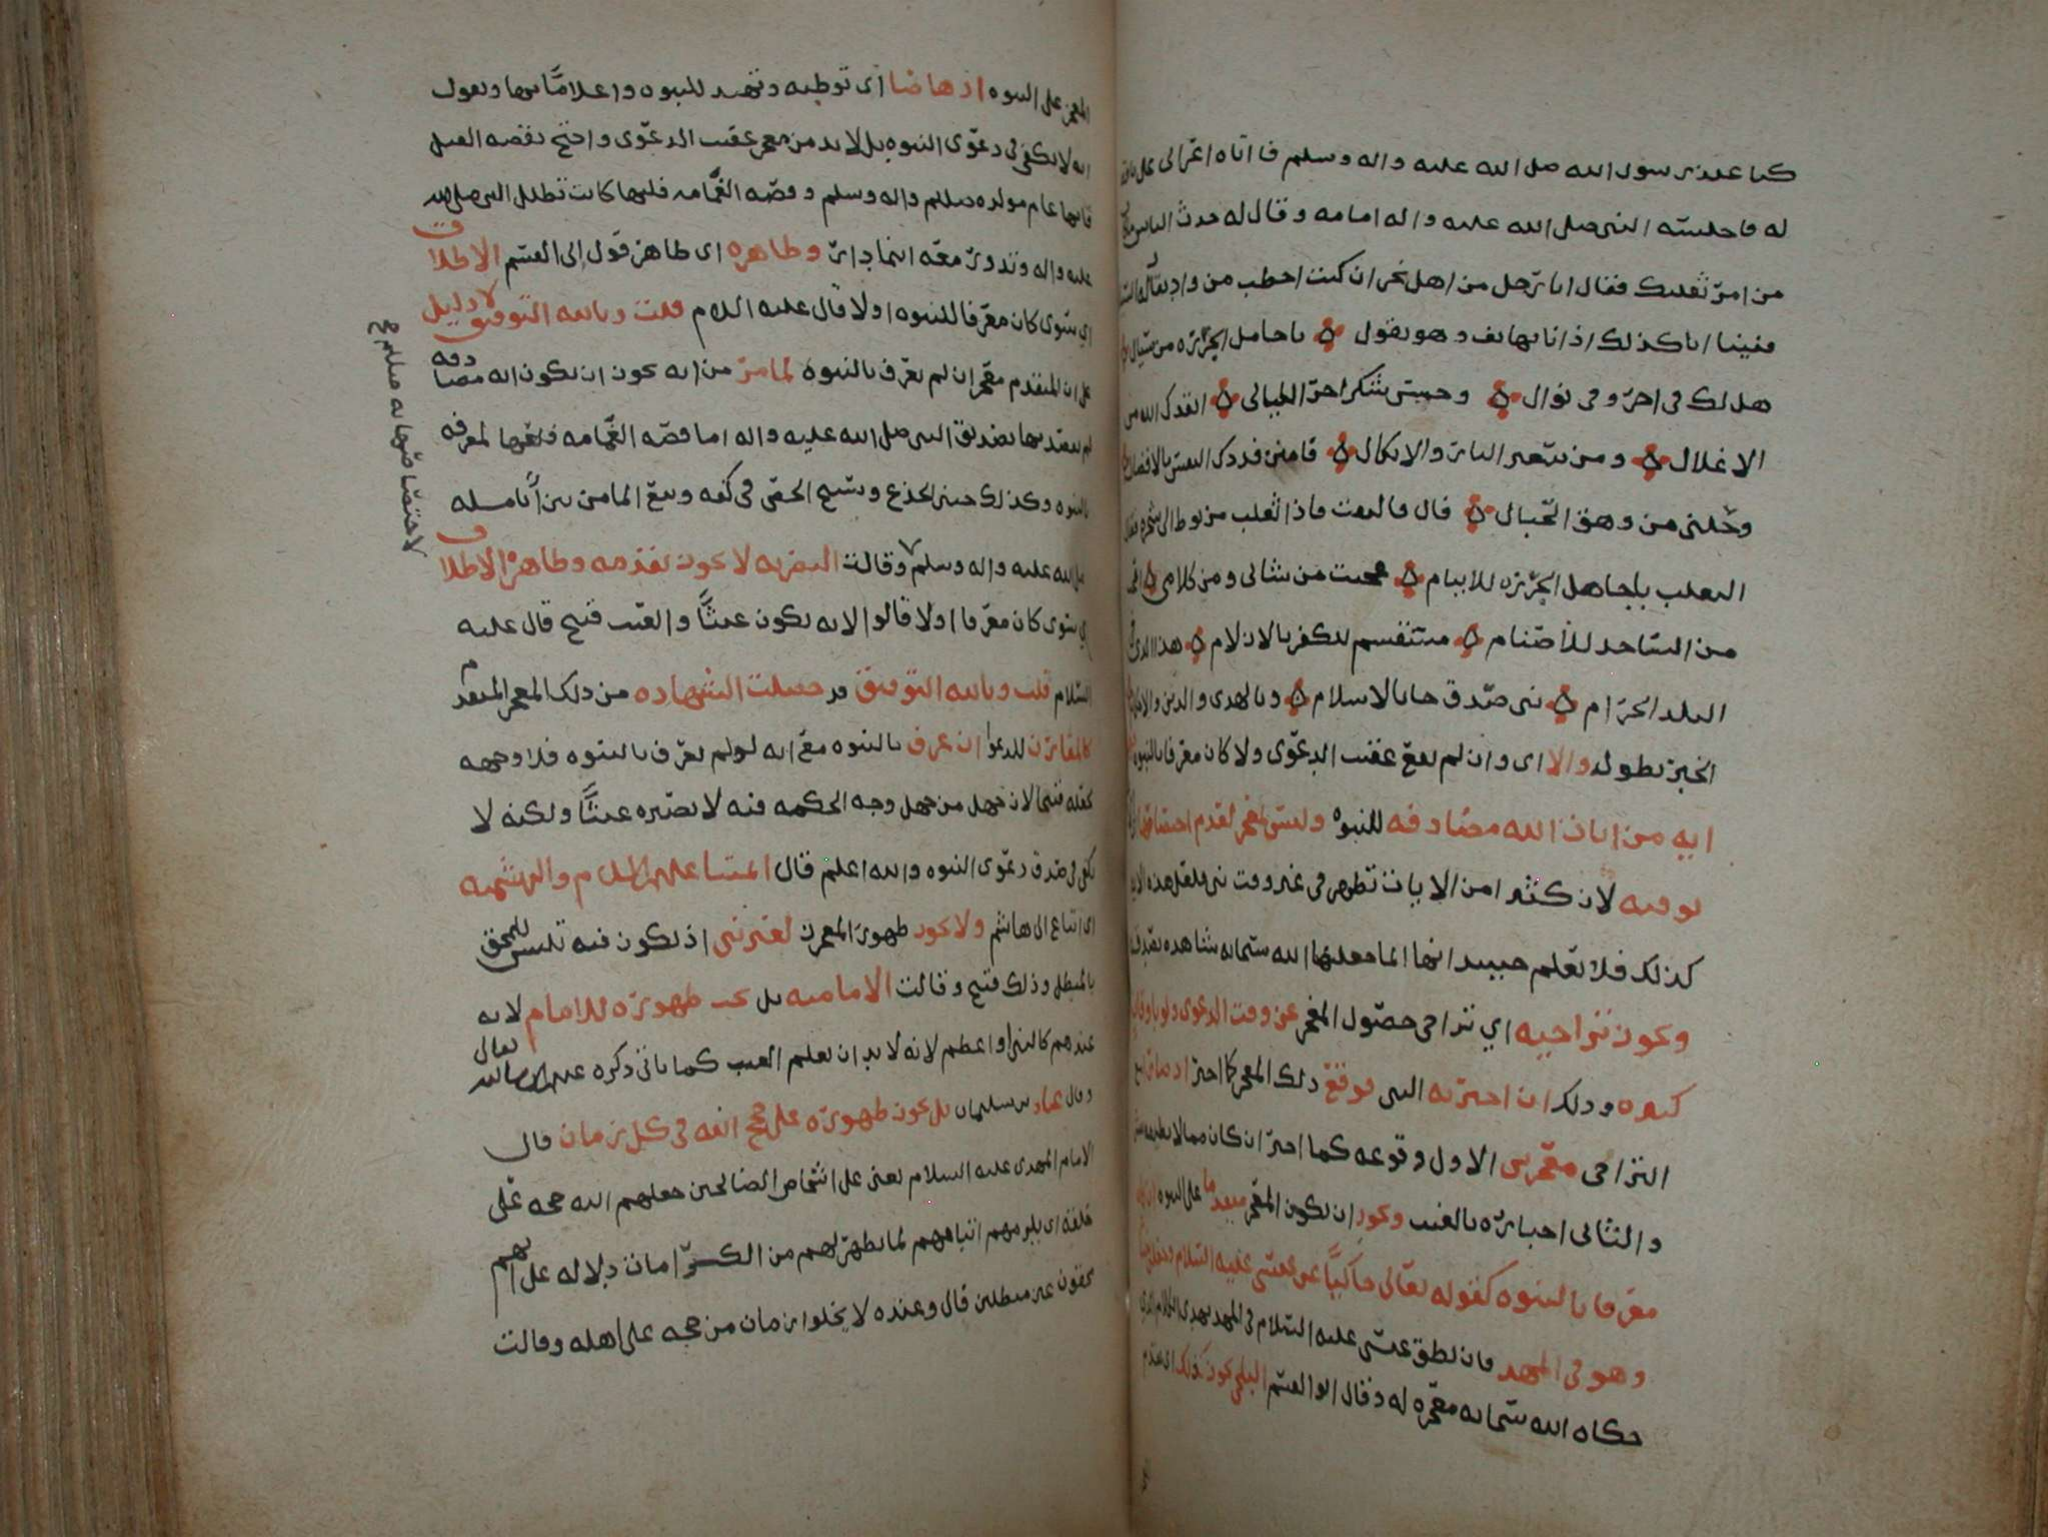 كنا عند رسول الله صلى الله عليه واله وسلم فاتاه اعرابي على ناقة
له فاجلسه النبي صلى الله عليه واله امامه وقال له حدث الناس
من امر ثعلبك فقال انا رجل من اهل نجران كنت احطب من واد يقال له
فبينا انا كذلك اذ انا بهاتف وهو يقول يا حامل الجرزه من سيال
هل لك في اجر وفي نوال وحسن شكر اخر الليالي انقذك الله من
الاغلال ومن سعير النار والانكال فامنن فدتك النفس بالافضال
وحلني من وهق الحبال قال فالتفت فاذا ثعلب مربوط الى شجره فقال
الثعلب يا حامل الجرزه للايتام عجبت من شاني ومن كلامي
من الساجد للاصنام مستقسم للكفر بالازلام هذا الذي
البلد الحرام نبي صدق جا بالاسلام وبالهدى والدين
الخبر بطوله والا اى وان لم يقع عقيب الدعوى ولا كان معرفا بالنبوه
ايه من ايات الله مصادفه للنبوه وليس بمعجز لعدم
لان كثيرا من الايات تظهر في غير وقت نبي
كذلك فلا يعلم حينئذ انها انما جعلها الله سبحانه شاهده
ويجوز تراخيه اي تراخى حصول المعجز عن وقت الدعوى ولو باوقات
كثيره وذلك ان اخبر به النبي فوقع ذلك المعجز كما اخبر اذ صار
التراخي معجزين الاول وقوعه كما اخبر ان كان مما لا
والثاني اخباره بالغيب ويجوز ان يكون المعجز متقدما على النبوه
معرفا بالنبوه كقوله تعالى حاكيا عن عيسى عليه السلام
وهو في المهد فان نطق عيسى عليه السلام في المهد بهذا الكلام الذي
حكاه الله سبحانه معجزه له وقال ابو القسم البلخي يجوز كذلك
المعجز على النبوه ارهاصا اى توطيه وتمهيد للنبوه واعلاما بها ويقول
انه لا يكفى في دعوى النبوه بل لا بد من معجز عقيب الدعوى واحتج بقصه الفيل
فانها عام مولده صلى الله عليه واله وسلم وقصه الغمامه فانها كانت تظلل النبي صلى الله
عليه واله وتدور معه اينما دار وظاهره اى ظاهر قول ابي القسم الاطلاق
اي سوى كان معرفا للنبوه او لا قال عليه السلام قلت وبالله التوفيق لا دليل
على ان المتقدم معجز ان لم يعرف بالنبوه لما مر من انه يجوز ان يكون ايه مصادفه
لم يقصد بها تصديق النبي صلى الله عليه واله اما قصه الغمامه فلعلها لمعرفه
بالنبوه وكذلك حنين الجذع وتسبيح الحصى في كفه ونبع الما من بين انامله
صلى الله عليه واله وسلم وقالت البصريه لا يجوز تقدمه وظاهره الاطلاق
اي سوى كان معرفا او لا قالوا لانه يكون عبثا والعبث قبيح قال عليه
السلام قلت وبالله التوفيق قد حصلت الشهاده من ذلك المعجز المتقدم
كالمقارن للدعوا ان عرف بالنبوه مع انه لو لم يعرف بالنبوه فلا وجه
لان جهل من جهل وجه الحكمه فيه لا يصيره عبثا ولكنه لا
يكفى في صدق دعوى النبوه والله اعلم قال ائمتنا عليهم السلام والبهشميه
اى اتباع ابى هاشم ولا يجوز ظهور المعجز لغير نبي اذ يكون فيه تلبيس للمحق
بالمبطل وذلك قبيح وقالت الاماميه بل يجب ظهوره للامام لانه
عندهم كالنبي او اعظم لانه لا بد ان يعلم الغيب كما ياتي ذكره عنهم ان شا الله تعالى
وقال عباد بن سليمان بل يجوز ظهوره على حجج الله في كل زمان قال
الامام المهدي عليه السلام يعنى على اشخاص الصالحين جعلهم الله حجه على
خلقه اى يلزمهم اتباعهم لما يظهر لهم من الكرامات دلاله على انهم
محقون غير مبطلين قال وعنده لا يخلوا زمان من حجه على اهله وقالت
لاختصاصها به صلى الله عليه